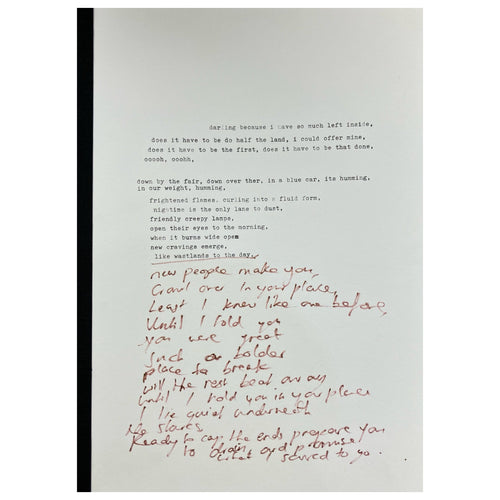 darling because i have so much left inside,
does it have to be do half the land, i could offer mine,
does it have to be the first, does it have to be that done,
ooooh, ooohh,
down by the fair, down over ther, in a blue car, its humming,
in our weight, humming,
frightened flames. curling into a fluid form,
nigntime is the only lane to dust,
friendly creepy lamps,
open their eyes to the morning,
when it burns wide open
new cravings emerge,
like wastlands to the day
new people make you,
Crawl over in your place,
Least I knew like one before,
Until I told you
you were great
Such a bolder
place to break
will the rest beat away
Until I told you in your place
I lie quiet underneath
No slaves
Ready to cap the ends prepare you
to drain and promise
sacred to you.